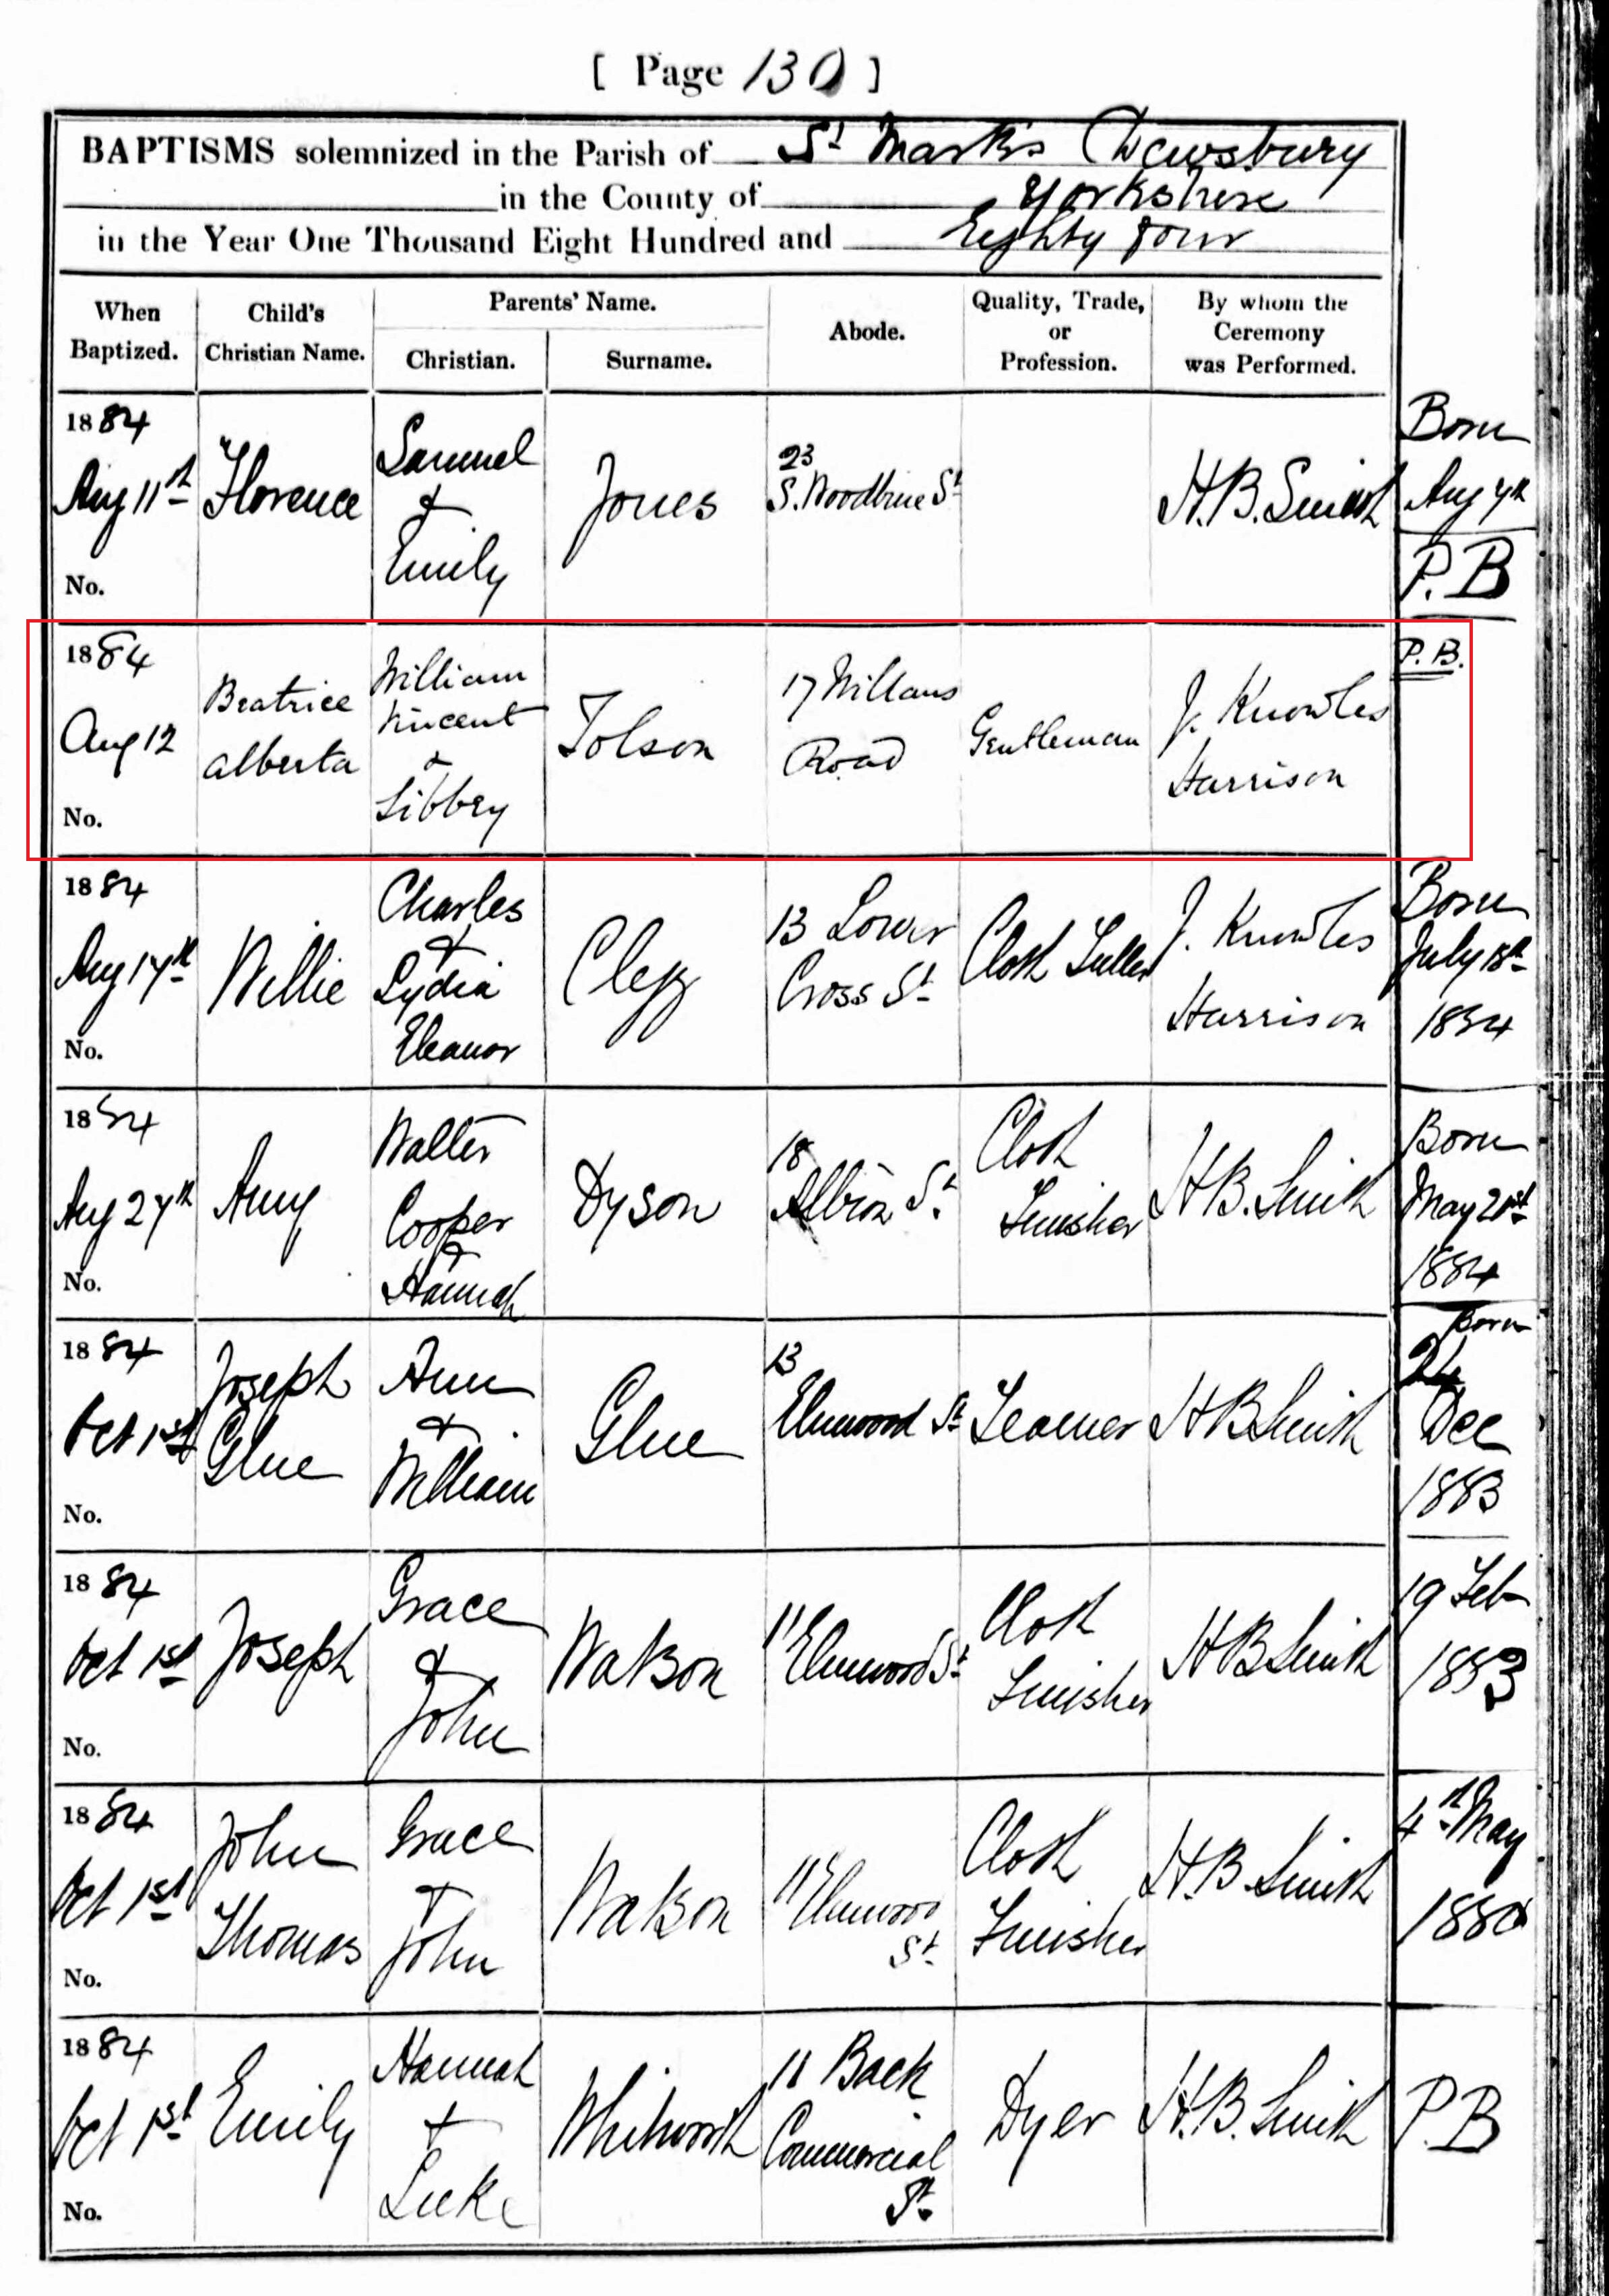 [ Page 130 ]
BAPTISMS solemnized in the Parish of St Mark's Dewsbury
in the County of Yorkshire
in the Year One Thousand Eight Hundred and Eighty four
When Baptized. Child's Christian Name. Parents' Name. Christian. Surname. Abode. Quality, Trade, or Profession. By whom the Ceremony was Performed.
1884
Aug 11th
No.
Florence
Samuel
+
Emily
Jones
23
S. Woodbine St
H.B. Smith
Born
Aug 7th
P.B
1884
Aug 12
No.
Beatrice
Alberta
William
Vincent
+
Libbey
Tolson
17 Willans
Road
Gentleman
J. Knowles
Harrison
P.B.
1884
Aug 17th
No.
Willie
Charles
+
Lydia
Eleanor
Clegg
13 Lower
Cross St
Cloth Fuller
J. Knowles
Harrison
Born
July 18th
1884
1884
Aug 27th
No.
Amy
Walter
Cooper
+
Hannah
Dyson
18
Albion St.
Cloth
Finisher
H.B. Smith
Born
May 21st
1884
1884
Oct 1st
No.
Joseph
Glue
Ann
+
William
Glue
13
Elmwood St
H B Smith
Born
24
Dec
1883
1884
Oct 1st
No.
Joseph
Grace
+
John
Watson
11 Elmwood St
Cloth
Finisher
H B Smith
19 Feb
1883
1884
Oct 1st
No.
John
Thomas
Grace
+
John
Watson
11 Elmwood
St
Cloth
Finisher
H.B. Smith
4th May
1880
1884
Oct 1st
No.
Emily
Hannah
+
Luke
Whitworth
11 Back
Commercial
St.
Dyer
H.B. Smith
P.B